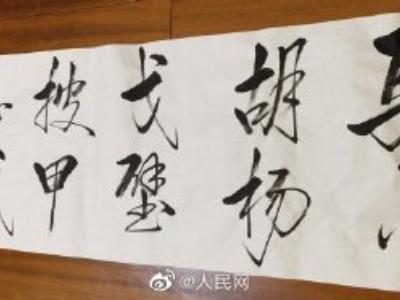 胡杨
戈壁
披甲
@人民网